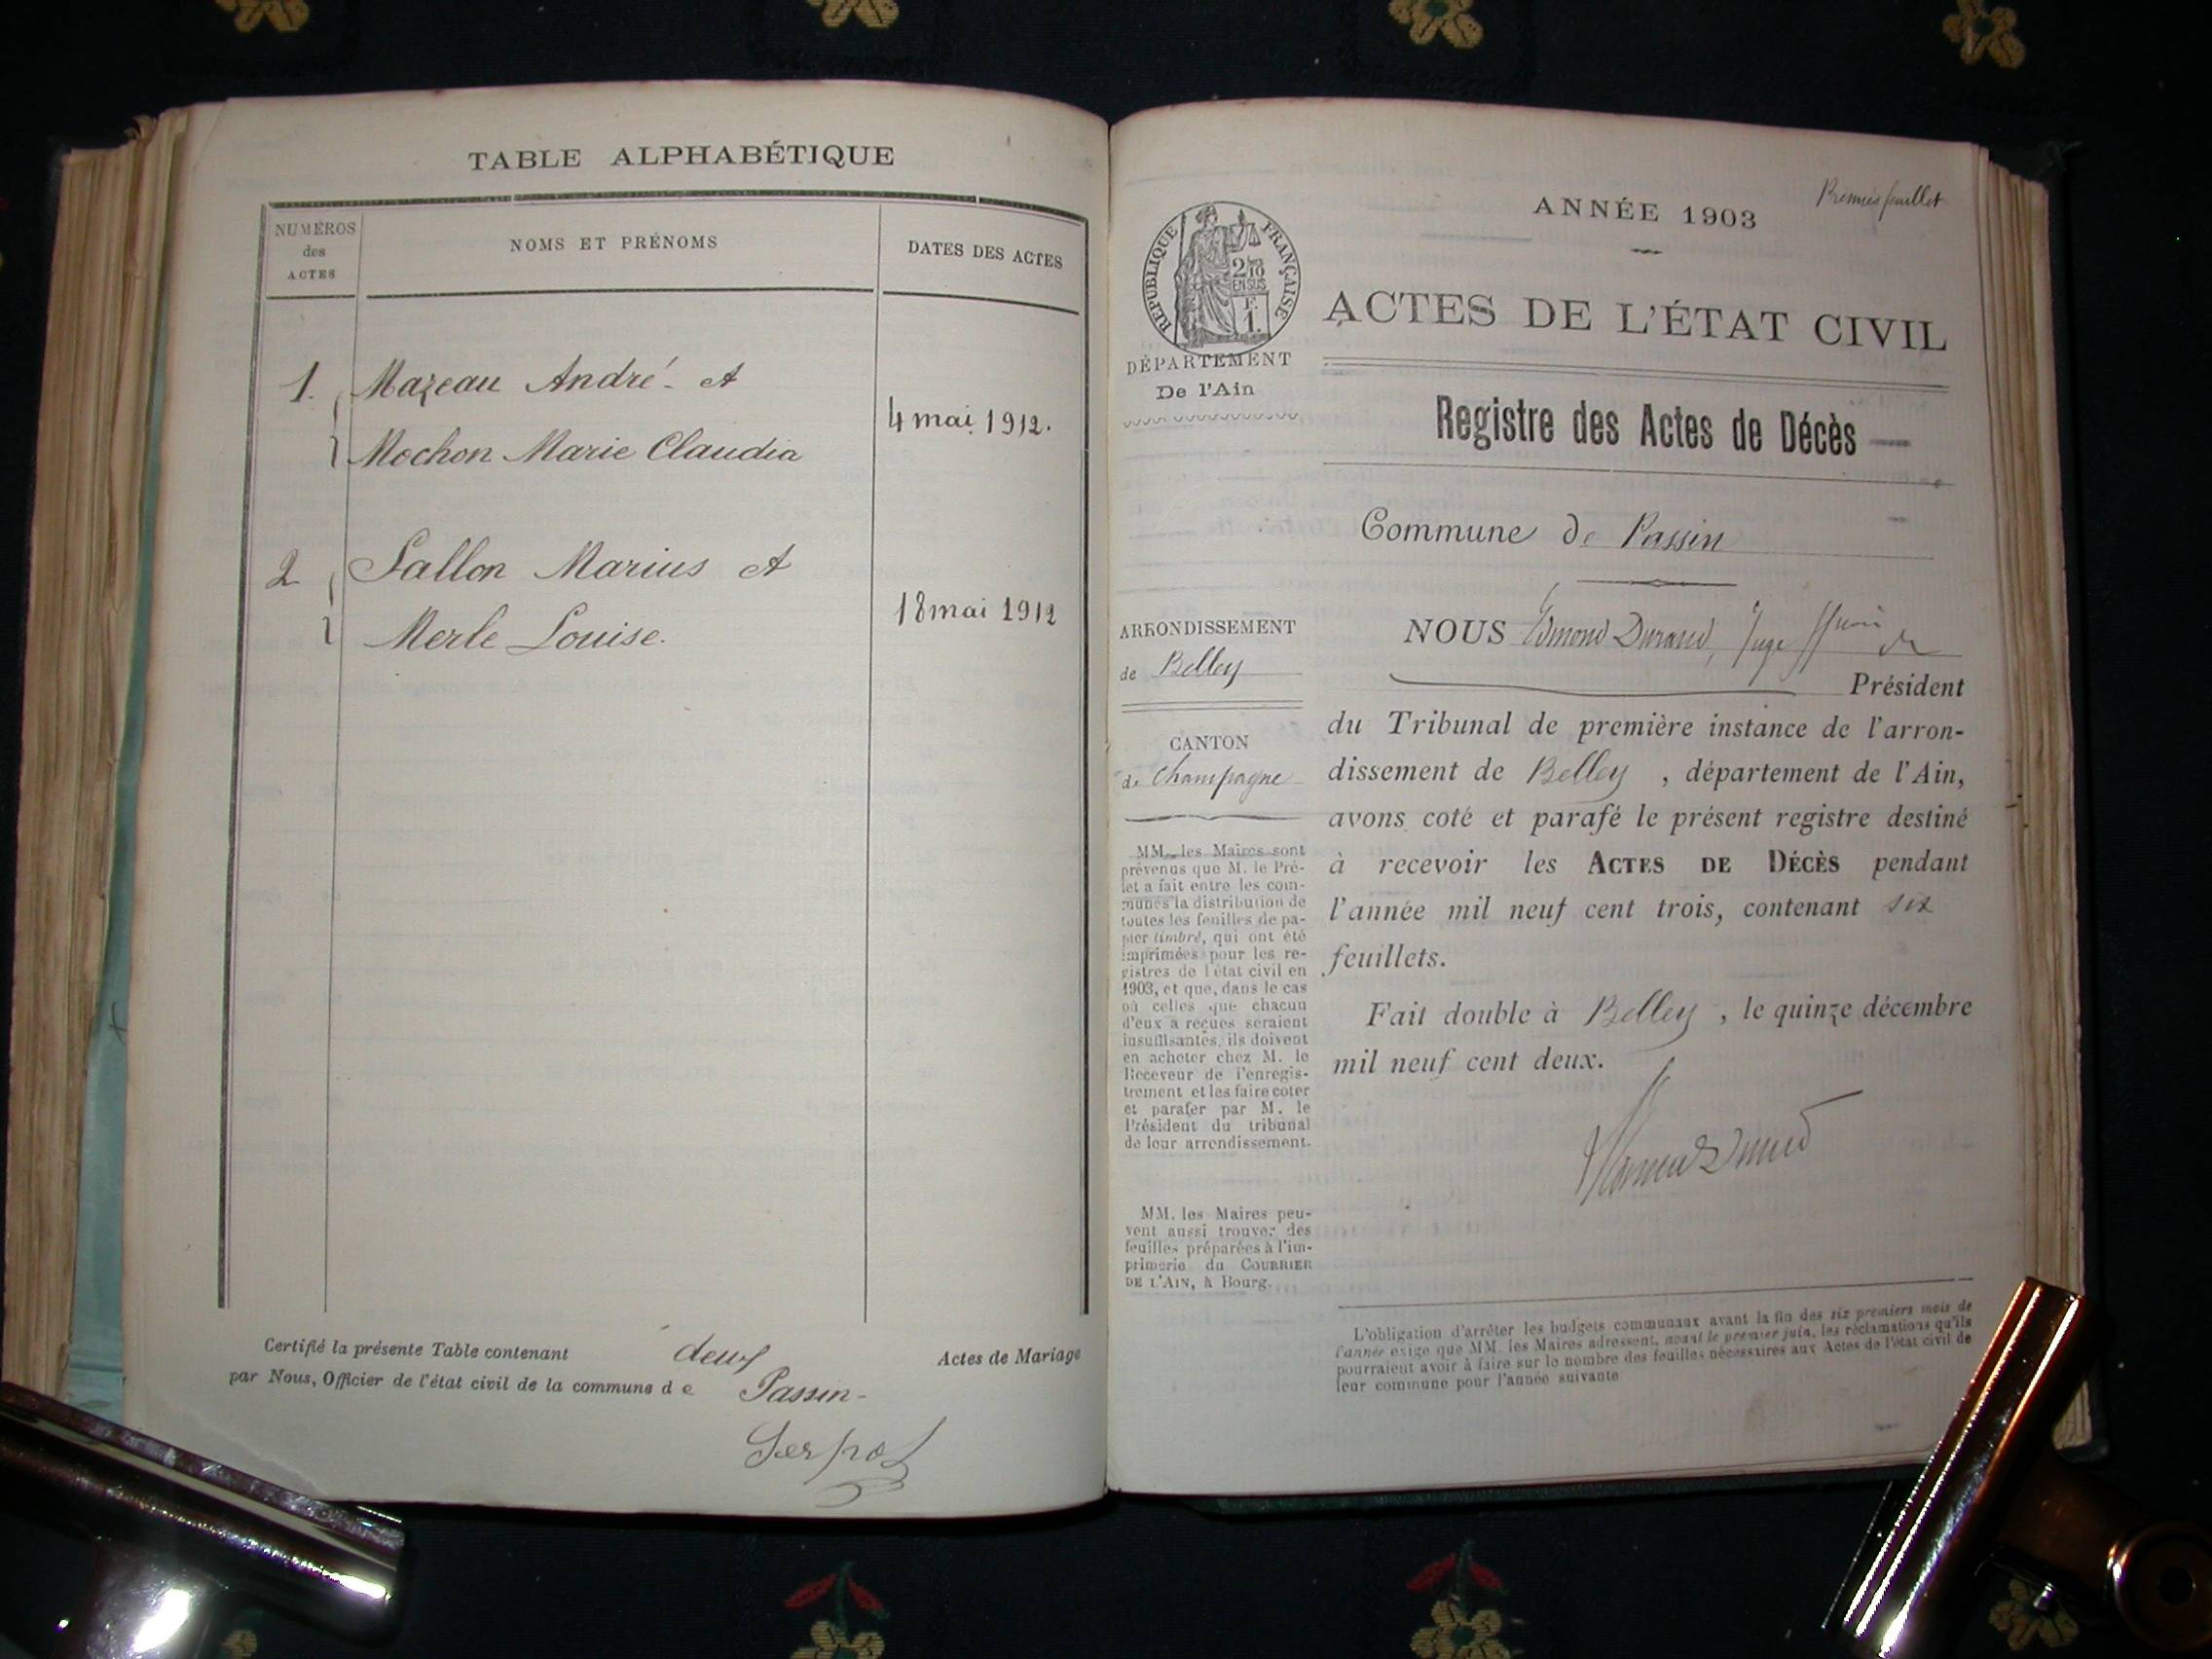 TABLE ALPHABÉTIQUE
NUMÉROS
des
ACTES
NOMS ET PRÉNOMS
DATES DES ACTES
1. Mazeau André et
Mochon Marie Claudia
4 mai 1912.
2 Sallon Marius et
Merle Louise.
18 mai 1912
Certifié la présente Table contenant deux Actes de Mariage
par Nous, Officier de l'état civil de la commune de Passin-
Serpol
Premier feuillet
ANNÉE 1903
RÉPUBLIQUE FRANÇAISE
2/10
EN SUS
F.
1.
ACTES DE L'ÉTAT CIVIL
DÉPARTEMENT
De l'Ain
Registre des Actes de Décès
Commune de Passin
ARRONDISSEMENT
de Belley
CANTON
de Champagne
MM. les Maires sont
prévenus que M. le Pré-
fet a fait entre les com-
munes la distribution de
toutes les feuilles de pa-
pier timbré, qui ont été
imprimées pour les re-
gistres de l'état civil en
1903, et que, dans le cas
où celles que chacun
d'eux a reçues seraient
insuffisantes, ils doivent
en acheter chez M. le
Receveur de l'enregis-
trement et les faire coter
et parafer par M. le
Président du tribunal
de leur arrondissement.
MM. les Maires peu-
vent aussi trouver des
feuilles préparées à l'im-
primerie du COURRIER
DE L'AIN, à Bourg.
NOUS Edmond Durand, Juge
Président
du Tribunal de première instance de l'arron-
dissement de Belley, département de l'Ain,
avons coté et parafé le présent registre destiné
à recevoir les ACTES DE DÉCÈS pendant
l'année mil neuf cent trois, contenant six
feuillets.
Fait double à Belley, le quinze décembre
mil neuf cent deux.
L'obligation d'arrêter les budgets communaux avant la fin des six premiers mois de
l'année exige que MM. les Maires adressent, avant le premier juin, les réclamations qu'ils
pourraient avoir à faire sur le nombre des feuilles nécessaires aux Actes de l'état civil de
leur commune pour l'année suivante